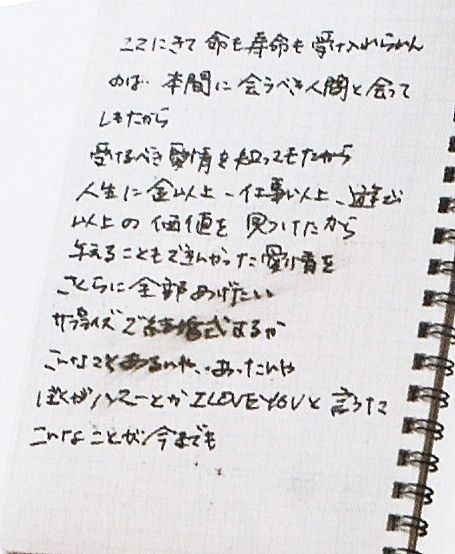 ここにきて 命も寿命も受け入れられん
のは 本間に会うべき人間と会って
しもたから
受けるべき愛情を知ってもたから
人生に金以上、仕事以上、遊び
以上の価値を見つけたから
与えることもできんかった愛情を
さくらに全部あげたい
サプライズで結婚式するか
こんなことあるんや、あったんや
ぼくがハニーとかI LOVE YOUと言うた
こんなことが今までも